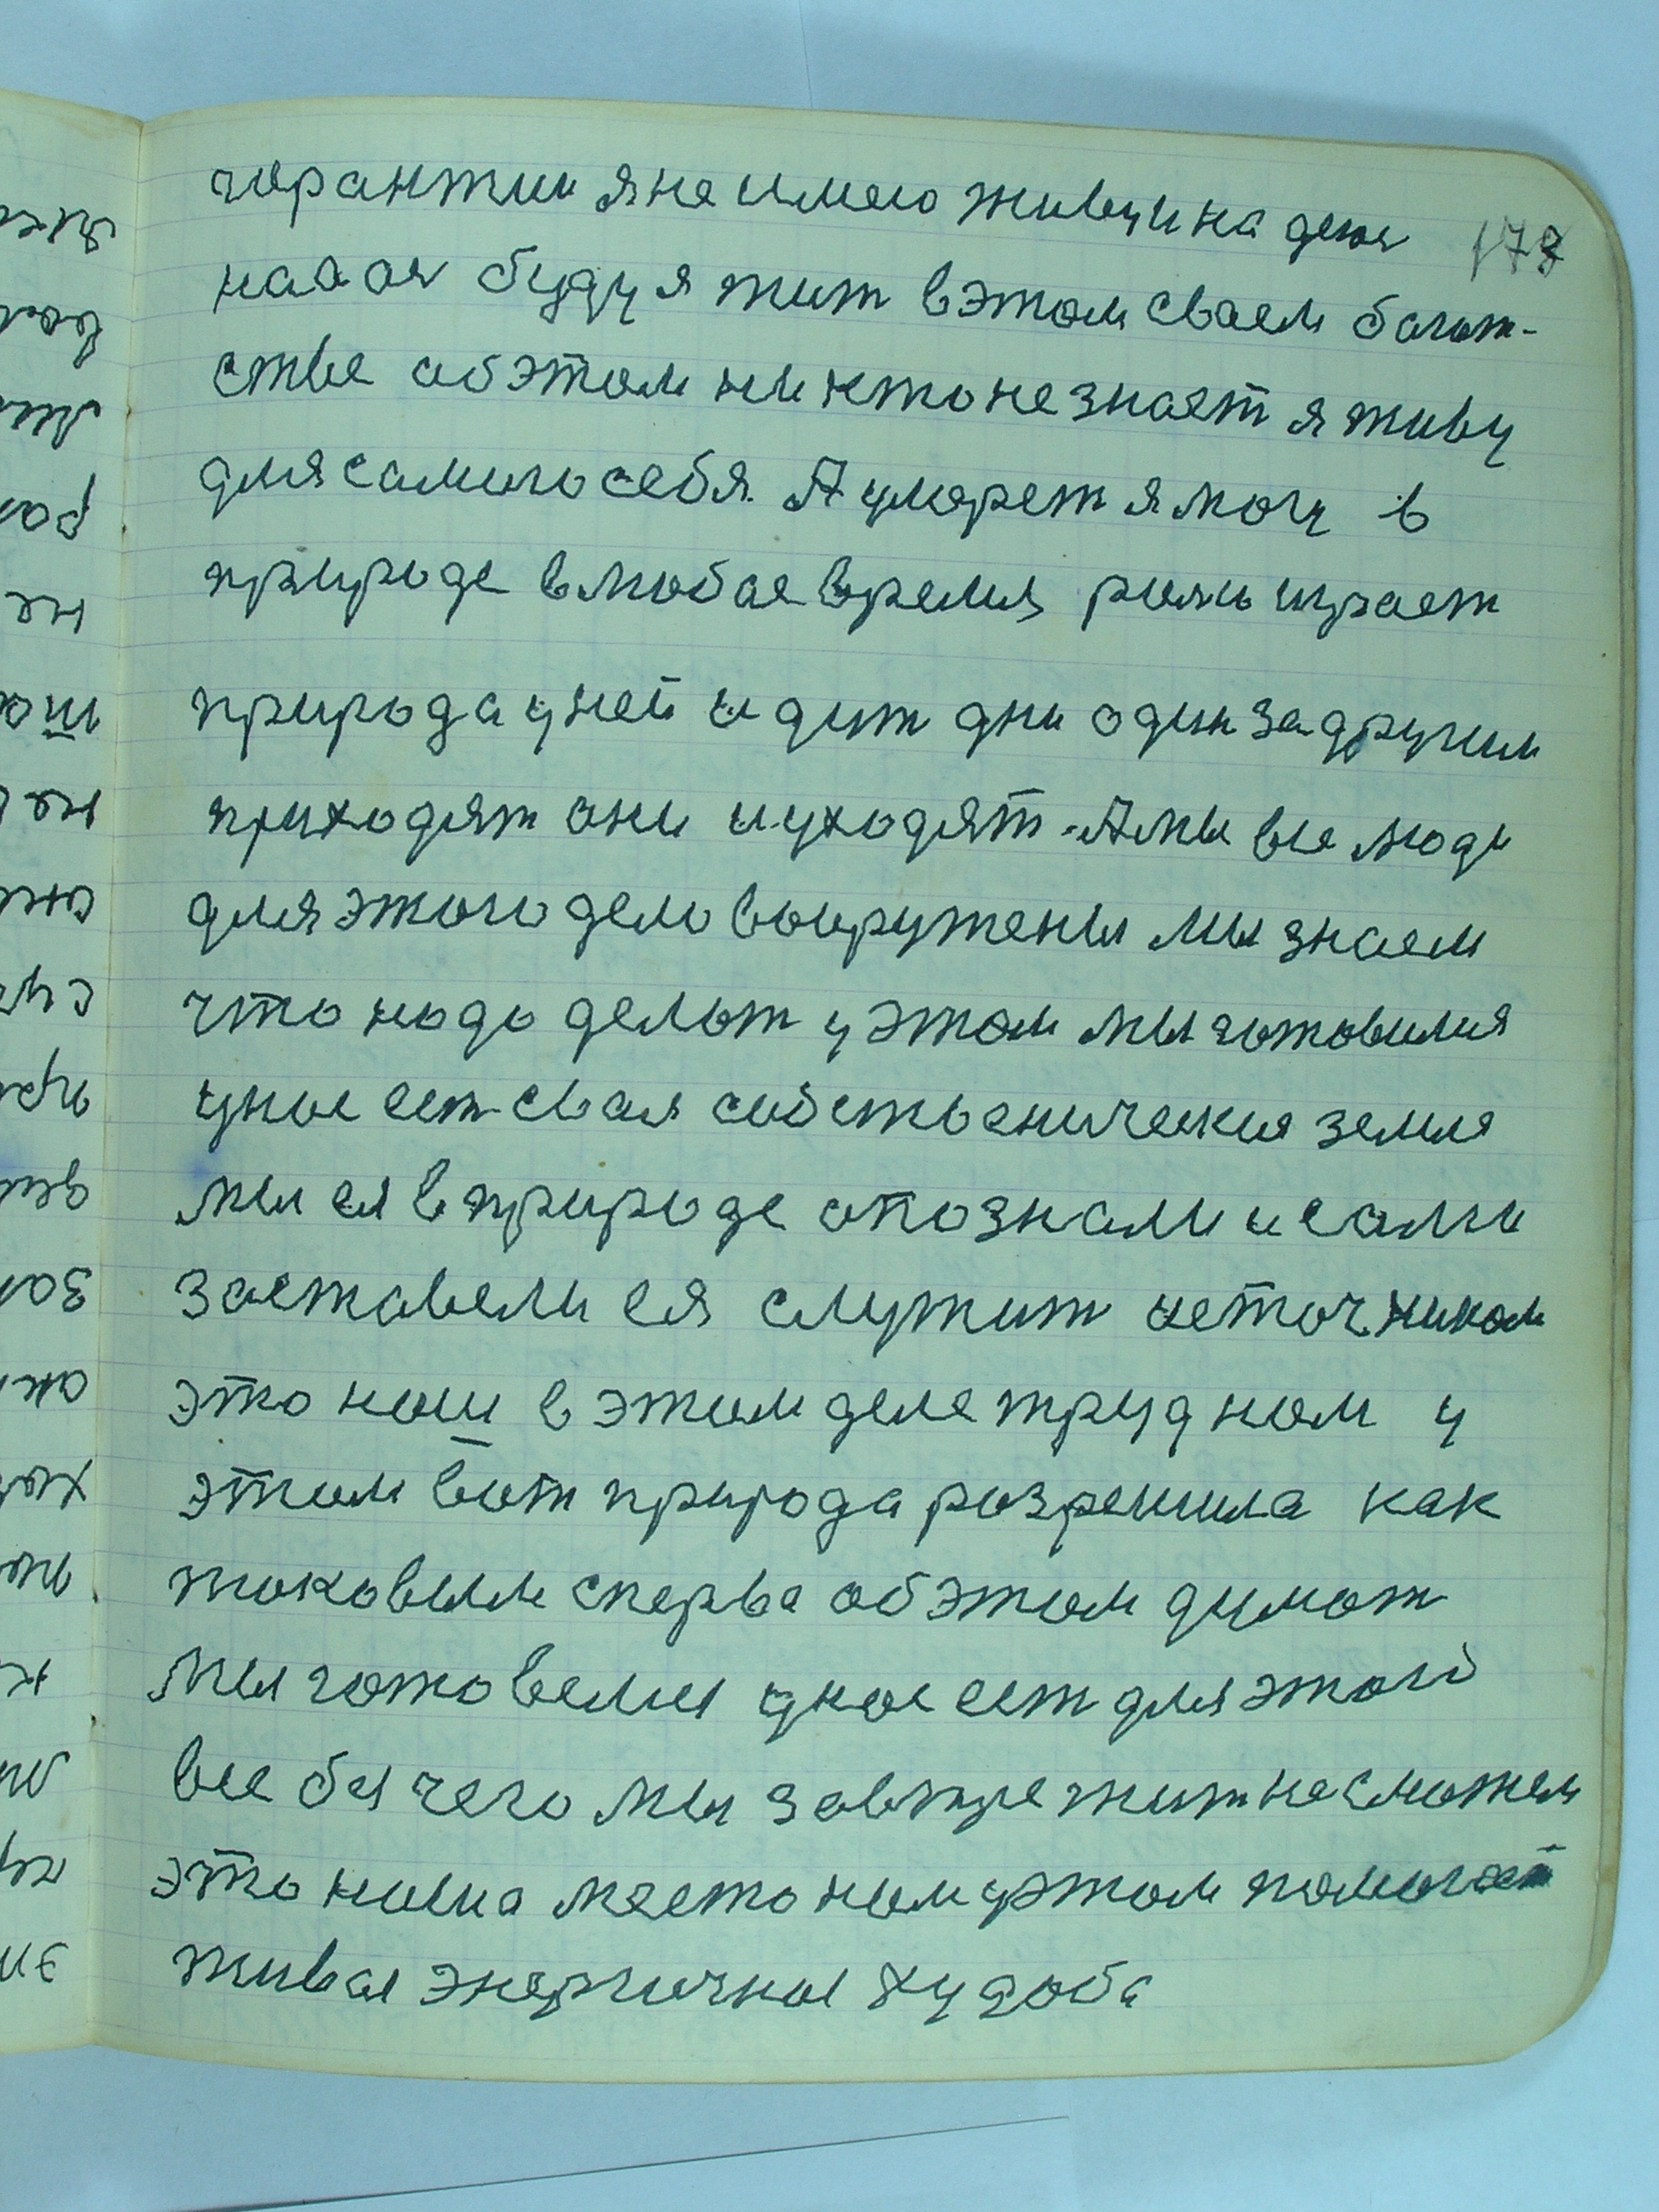 гарантии я не имею живу и надеюя
налоя буду я жит в этом сваем богат-
стве об этом никто не знает я живу
для самого себя. А умерет я могу в
природе в любое время роль играет
природа у ней идут дни один за другим
приходят они и уходят. А мы все люди
для этого дело вооружены мы знаем
что надо делат у этом мы готовимся
у нас ест свая собственическия земля
мы ея в природе опознали и сами
заставели ея служит источником
это наш в этом деле трудном у
этом вот природа розрешила как
таковым сперва об этом думат
мы готовемся у нас ест для этого
все без чего мы завтре жит не сможем
это наша место нам у этом помогает
живая энергичная худоба
178